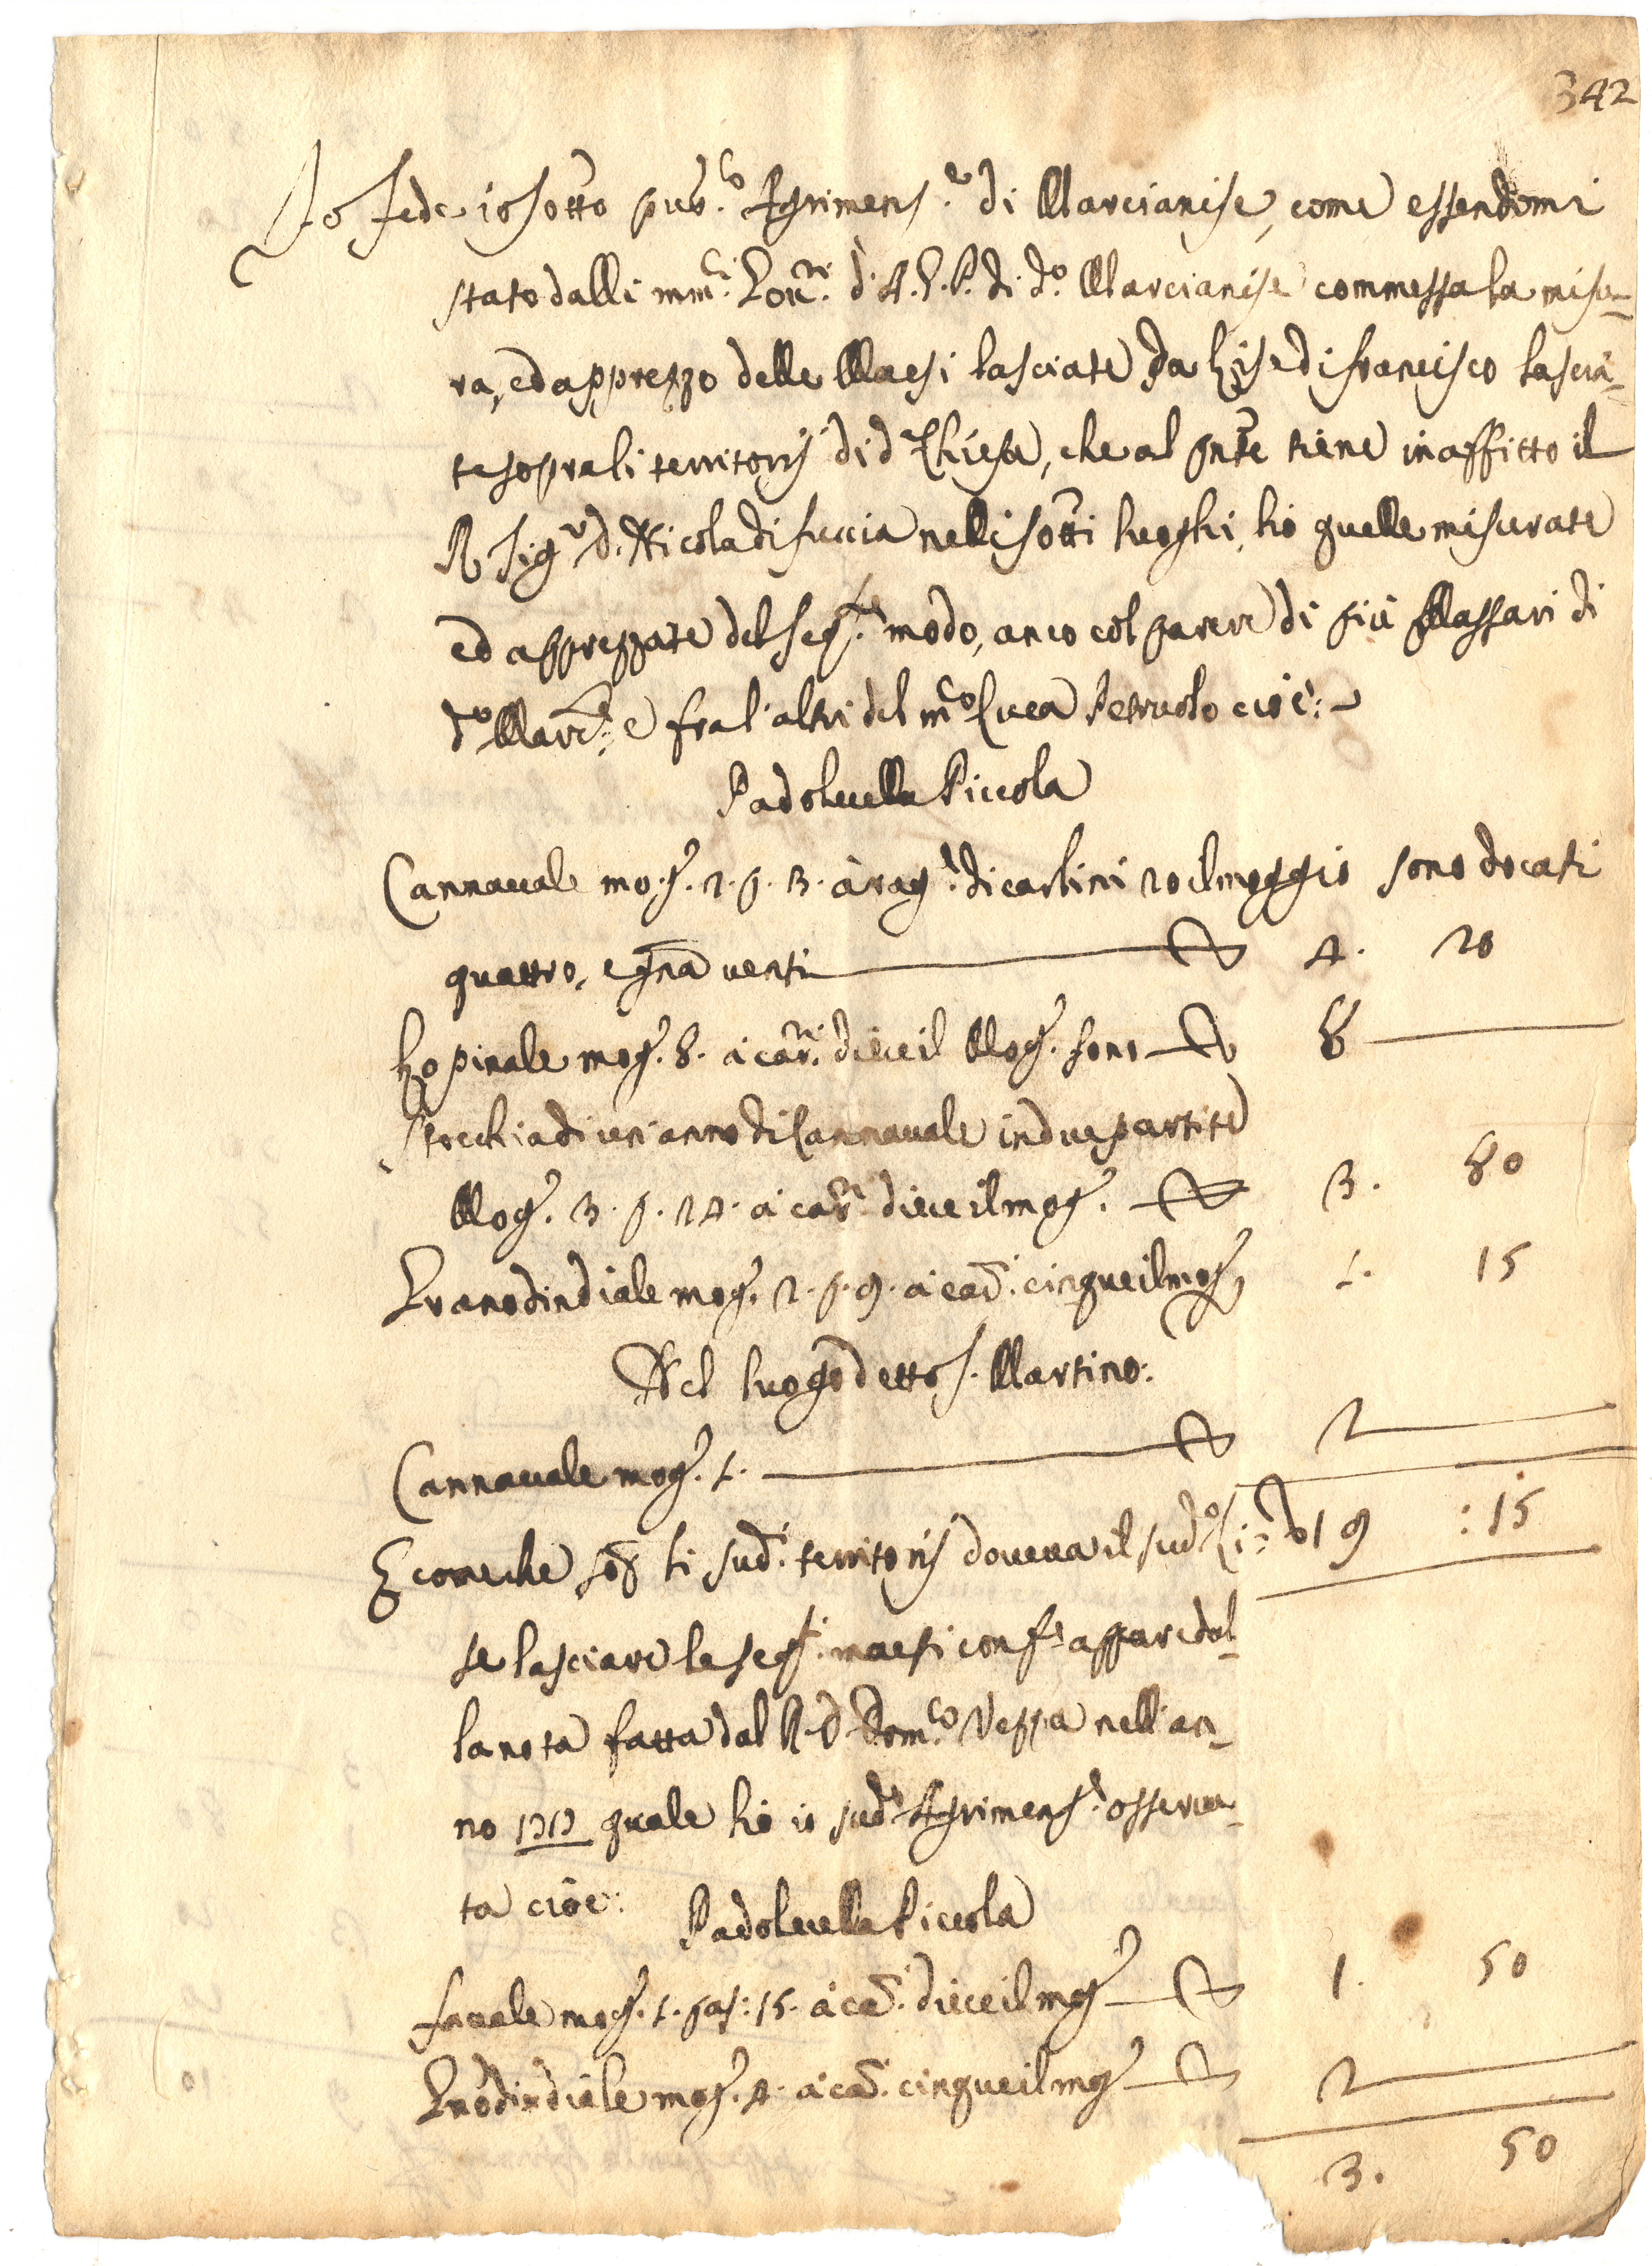 342
Fo fede io sotto pub.co Agrimens.re di Marcianise, come essendomi
stato dalli mm.ci di A. G. P. di d.o Marcianise commessa la misu-
ra, ed apprezzo delle Maesi lasciate da Lise di francisco lascia-
te sopra li territorij di d.a Chiesa, che al pnte tiene in affitto il
R. Sig.r D. Nicola di fuccia nelli sotti luoghi, hò quelle misurate
ed apprezzate del seg.te modo, anco col parere di più Massari di
d.o Marc.e e fra l'altri del m.co Luca Petruolo cioè:
Padoluella Piccola
Cannavale mog. 2. p. 3. à rag.e di carlini 20 il moggio sono docati
quattro, e gna venti D 4. 20
Lopinale mog. 8. à car.ni diece il Mog. sono D 8
Stocchia di un anno di Cannavale in due partite
Mog. 3. p. 24. à car.ni diece il mog. D 3. 80
Granodindiale mog. 2. p. 9. à car.i cinque il mog. 1. 15
Nel luogo detto S. Martino:
Cannavale mog. 1. D 2
E come che sop.a li sud.i territorij doveva il sud.o Li= D 19 : 15
se lasciare le seg.ti maesi conf.e appare dal-
la nota fatta dal R. D. Dom.co Nezza nell'an-
no 1717 quale hò io sud.o Agrimens.e osserva-
ta cioè:
Padoluella Piccola
favale mog. 1. pas: 15. à car.i diece il mog. D 1. 50
Gnodindiale mog. 4. à car.i cinque il mog. D 2
3. 50